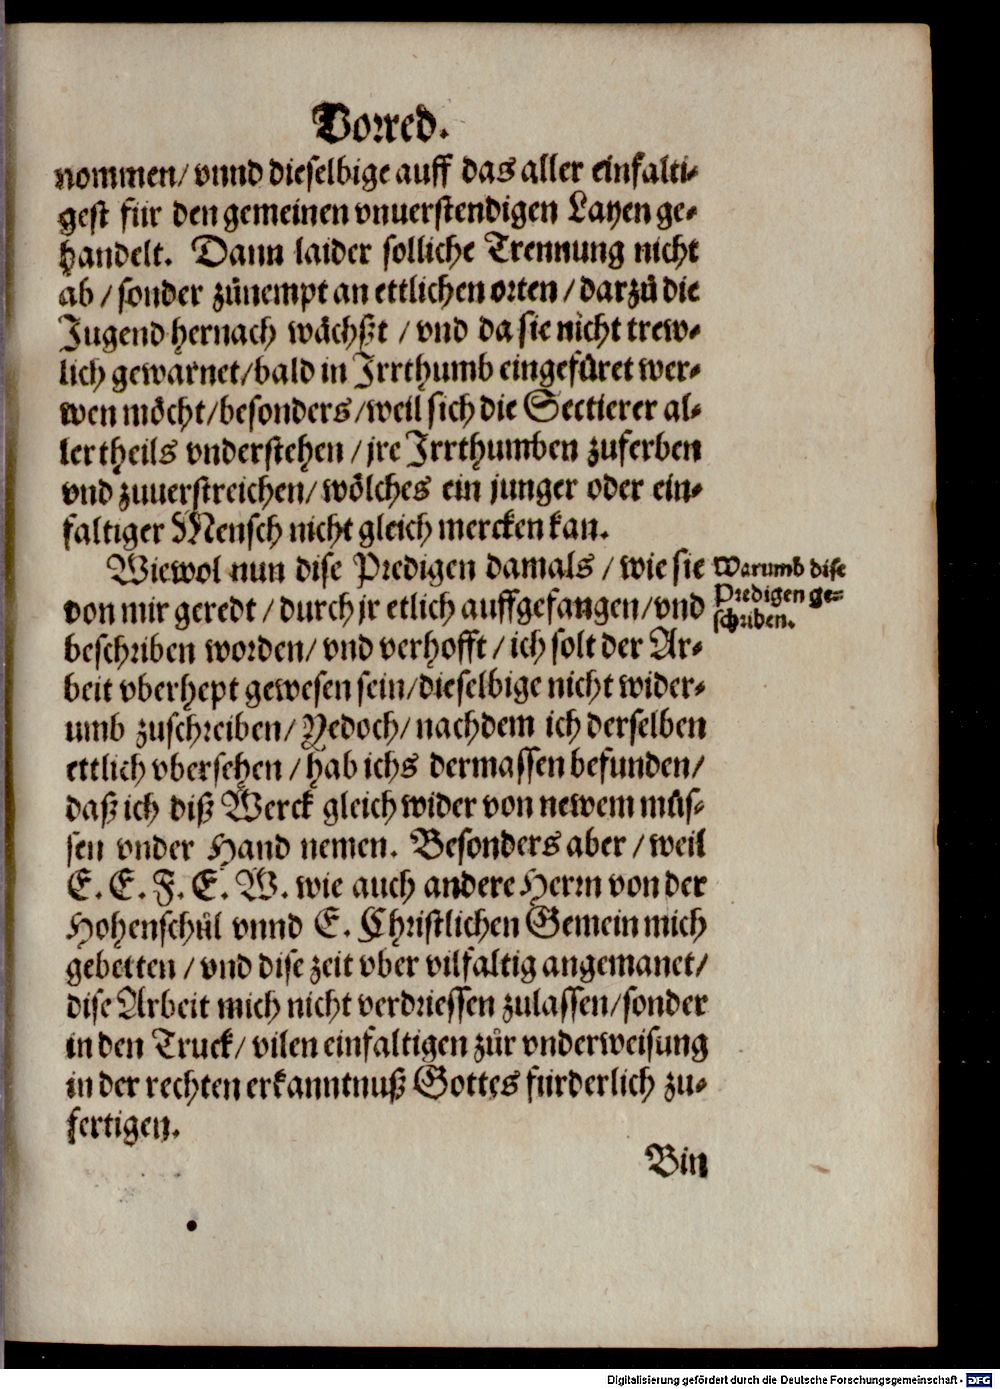 Vorred.
nommen/ vnnd dieselbige auff das aller einfalti-
gest für den gemeinen vnuerstendigen Layen ge-
handelt. Dann laider solliche Trennung nicht
ab / sonder zůnempt an ettlichen orten / darzů die
Jugend hernach wächßt / vnd da sie nicht trew-
lich gewarnet/ bald in Irrthumb eingefůret wer-
wen möcht/ besonders/ weil sich die Sectierer al-
lertheils vnderstehen / jre Irrthumben zuferben
vnd zuuerstreichen/ wölches ein junger oder ein-
faltiger Mensch nicht gleich mercken kan.
Wiewol nun dise Predigen damals / wie sie
von mir geredt / durch jr etlich auffgefangen/ vnd
beschriben worden/ vnd verhofft / ich solt der Ar-
beit vberhept gewesen sein/ dieselbige nicht wider-
umb zuschreiben/ Yedoch/ nachdem ich derselben
ettlich vbersehen / hab ichs dermassen befunden/
daß ich diß Werck gleich wider von newem můs-
sen vnder Hand nemen. Besonders aber / weil
E. E. F. E. W. wie auch andere Herrn von der
Hohenschůl vnnd E. Christlichen Gemein mich
gebetten / vnd dise zeit vber vilfaltig angemanet/
dise Arbeit mich nicht verdriessen zulassen/ sonder
in den Truck/ vilen einfaltigen zůr vnderweisung
in der rechten erkanntnuß Gottes fürderlich zu-
fertigen.
Warumb dise
Predigen ge-
schriben.
Bin
Digitalisierung gefördert durch die Deutsche Forschungsgemeinschaft - DFG